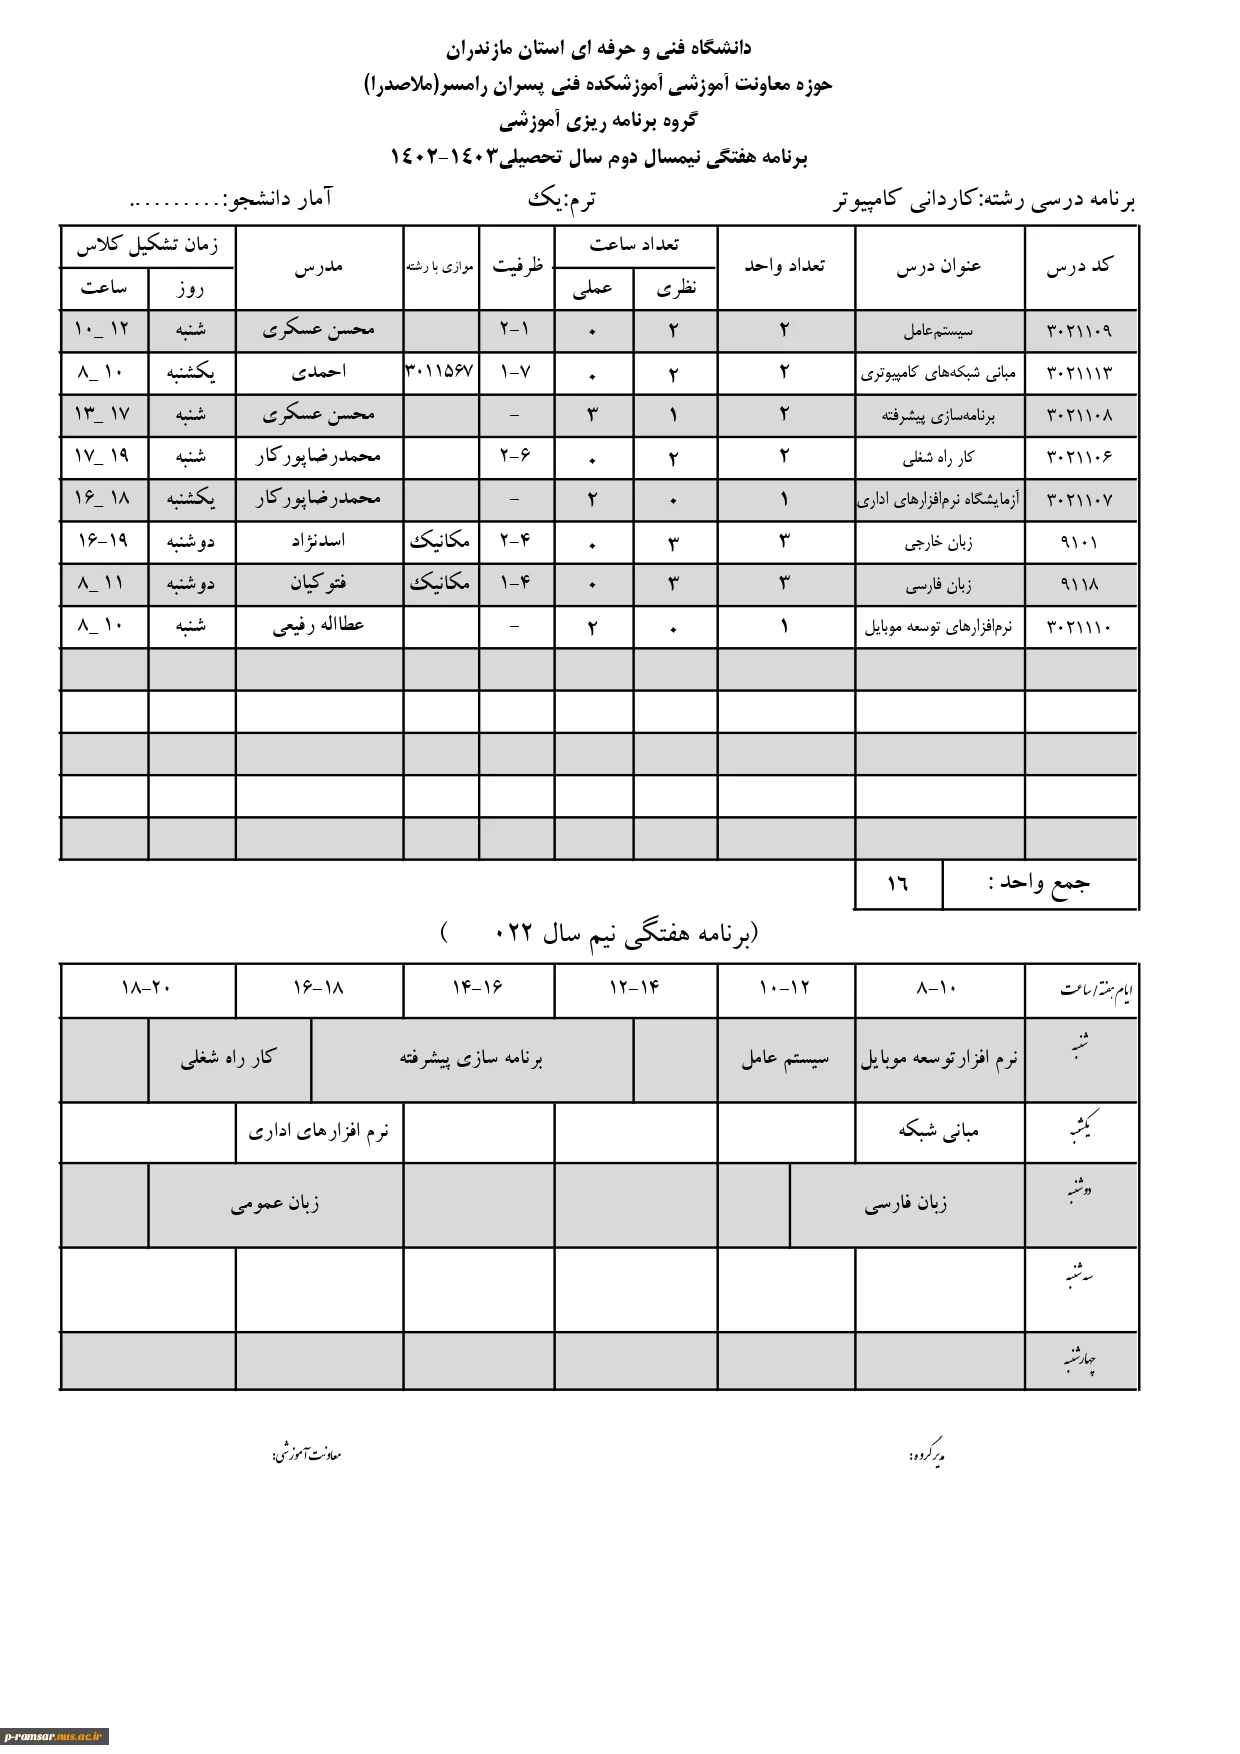 دانشگاه فنی و حرفه ای استان مازندران
حوزه معاونت آموزشی آموزشکده فنی پسران رامسر(ملاصدرا)
گروه برنامه ریزی آموزشی
برنامه هفتگی نیمسال دوم سال تحصیلی۱۴۰۳-۱۴۰۲
برنامه درسی رشته:کاردانی کامپیوتر ترم:یک آمار دانشجو:..........
کد درس عنوان درس تعداد واحد تعداد ساعت ظرفیت موازی با رشته مدرس زمان تشکیل کلاس
نظری عملی روز ساعت
۳۰۲۱۱۰۹ سیستم‌عامل ۲ ۲ ۰ ۲-۱ محسن عسکری شنبه ۱۲ _۱۰
۳۰۲۱۱۱۳ مبانی شبکه‌های کامپیوتری ۲ ۲ ۰ ۱-۷ ۳۰۱۱۵۶۷ احمدی یکشنبه ۱۰ _۸
۳۰۲۱۱۰۸ برنامه‌سازی پیشرفته ۲ ۱ ۳ - محسن عسکری شنبه ۱۷ _۱۳
۳۰۲۱۱۰۶ کار راه شغلی ۲ ۲ ۰ ۲-۶ محمدرضاپورکار شنبه ۱۹ _۱۷
۳۰۲۱۱۰۷ آزمایشگاه نرم‌افزارهای اداری ۱ ۰ ۲ - محمدرضاپورکار یکشنبه ۱۸ _۱۶
۹۱۰۱ زبان خارجی ۳ ۳ ۰ ۲-۴ مکانیک اسدنژاد دوشنبه ۱۶-۱۹
۹۱۱۸ زبان فارسی ۳ ۳ ۰ ۱-۴ مکانیک فتوکیان دوشنبه ۱۱ _۸
۳۰۲۱۱۱۰ نرم‌افزارهای توسعه موبایل ۱ ۰ ۲ - عطااله رفیعی شنبه ۱۰ _۸
جمع واحد : ۱۶
(برنامه هفتگی نیم سال ۰۲۲ )
ایام هفته / ساعت ۸-۱۰ ۱۰-۱۲ ۱۲-۱۴ ۱۴-۱۶ ۱۶-۱۸ ۱۸-۲۰
شنبه نرم افزارتوسعه موبایل سیستم عامل برنامه سازی پیشرفته کار راه شغلی
یکشنبه مبانی شبکه نرم افزارهای اداری
دوشنبه زبان فارسی زبان عمومی
سه شنبه
چهارشنبه
مدیر گروه: معاونت آموزشی:
p-ramsar.nus.ac.ir